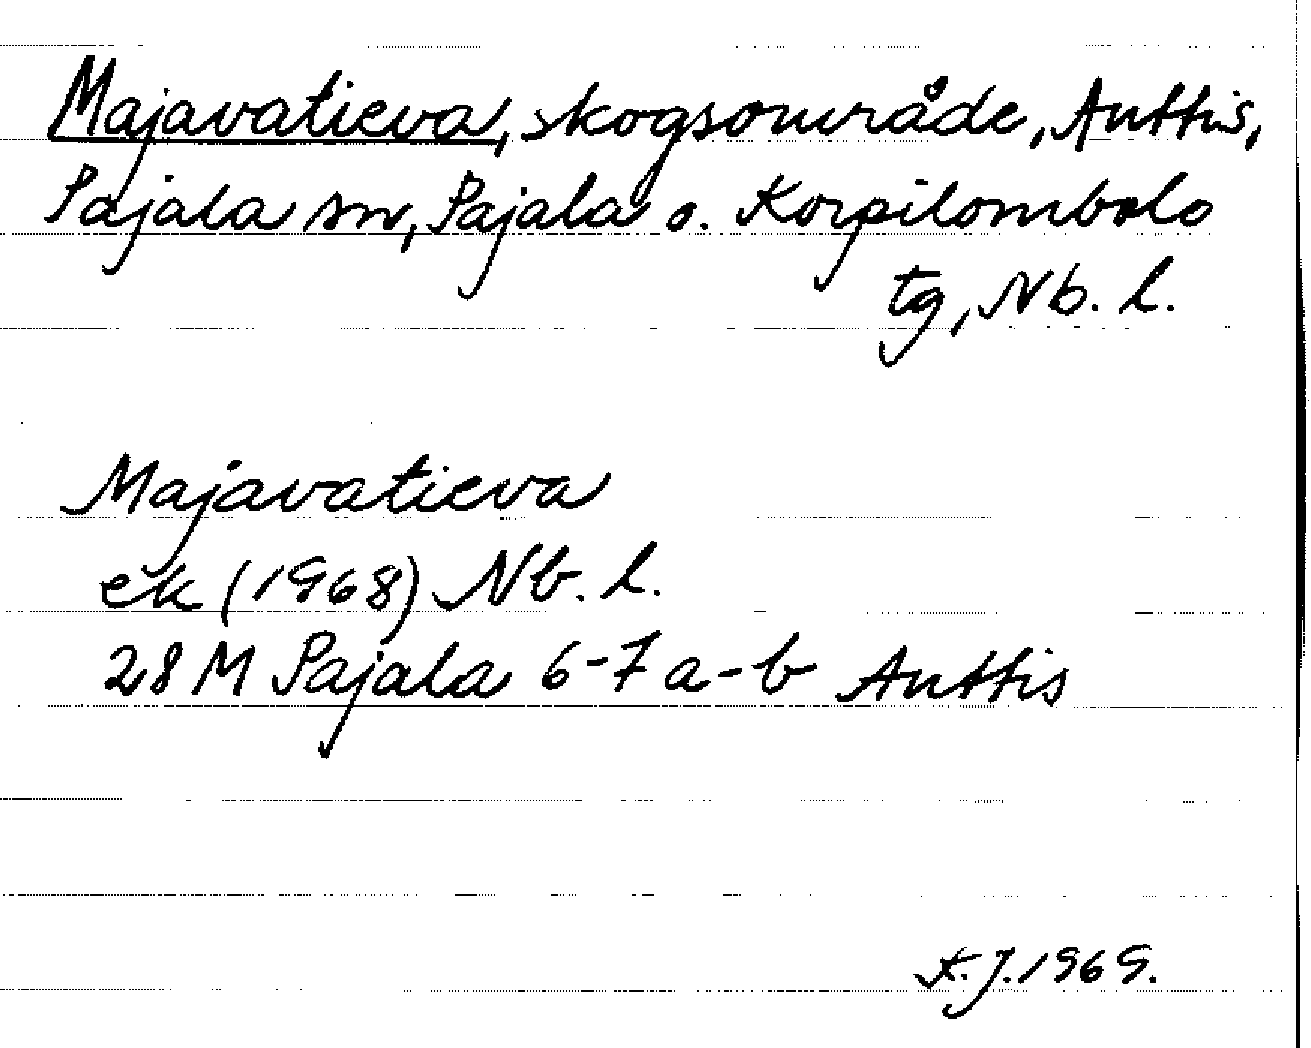 Majavatieva, skogsområde, Anttis,
Pajala sn, Pajala o. Korpilombolo
tg, Nb. l.
Majavatieva
ek (1968) Nb. l.
28 M Pajala 6-7 a-b Anttis
K.J. 1969.